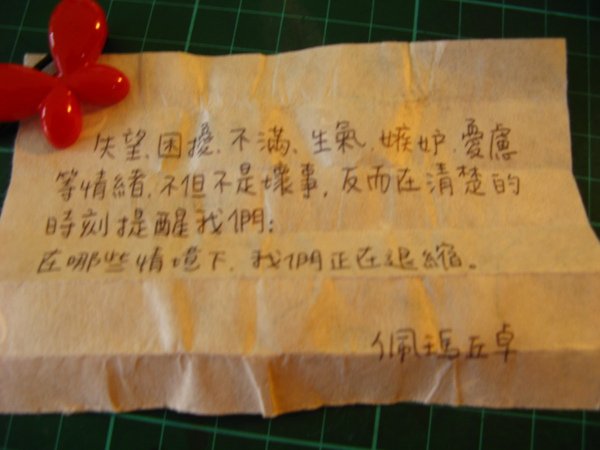 失望、困擾、不滿、生氣、嫉妒、憂慮
等情緒，不但不是壞事，反而在清楚的
時刻提醒我們：
在哪些情境下，我們正在退縮。
佩瑪丘卓